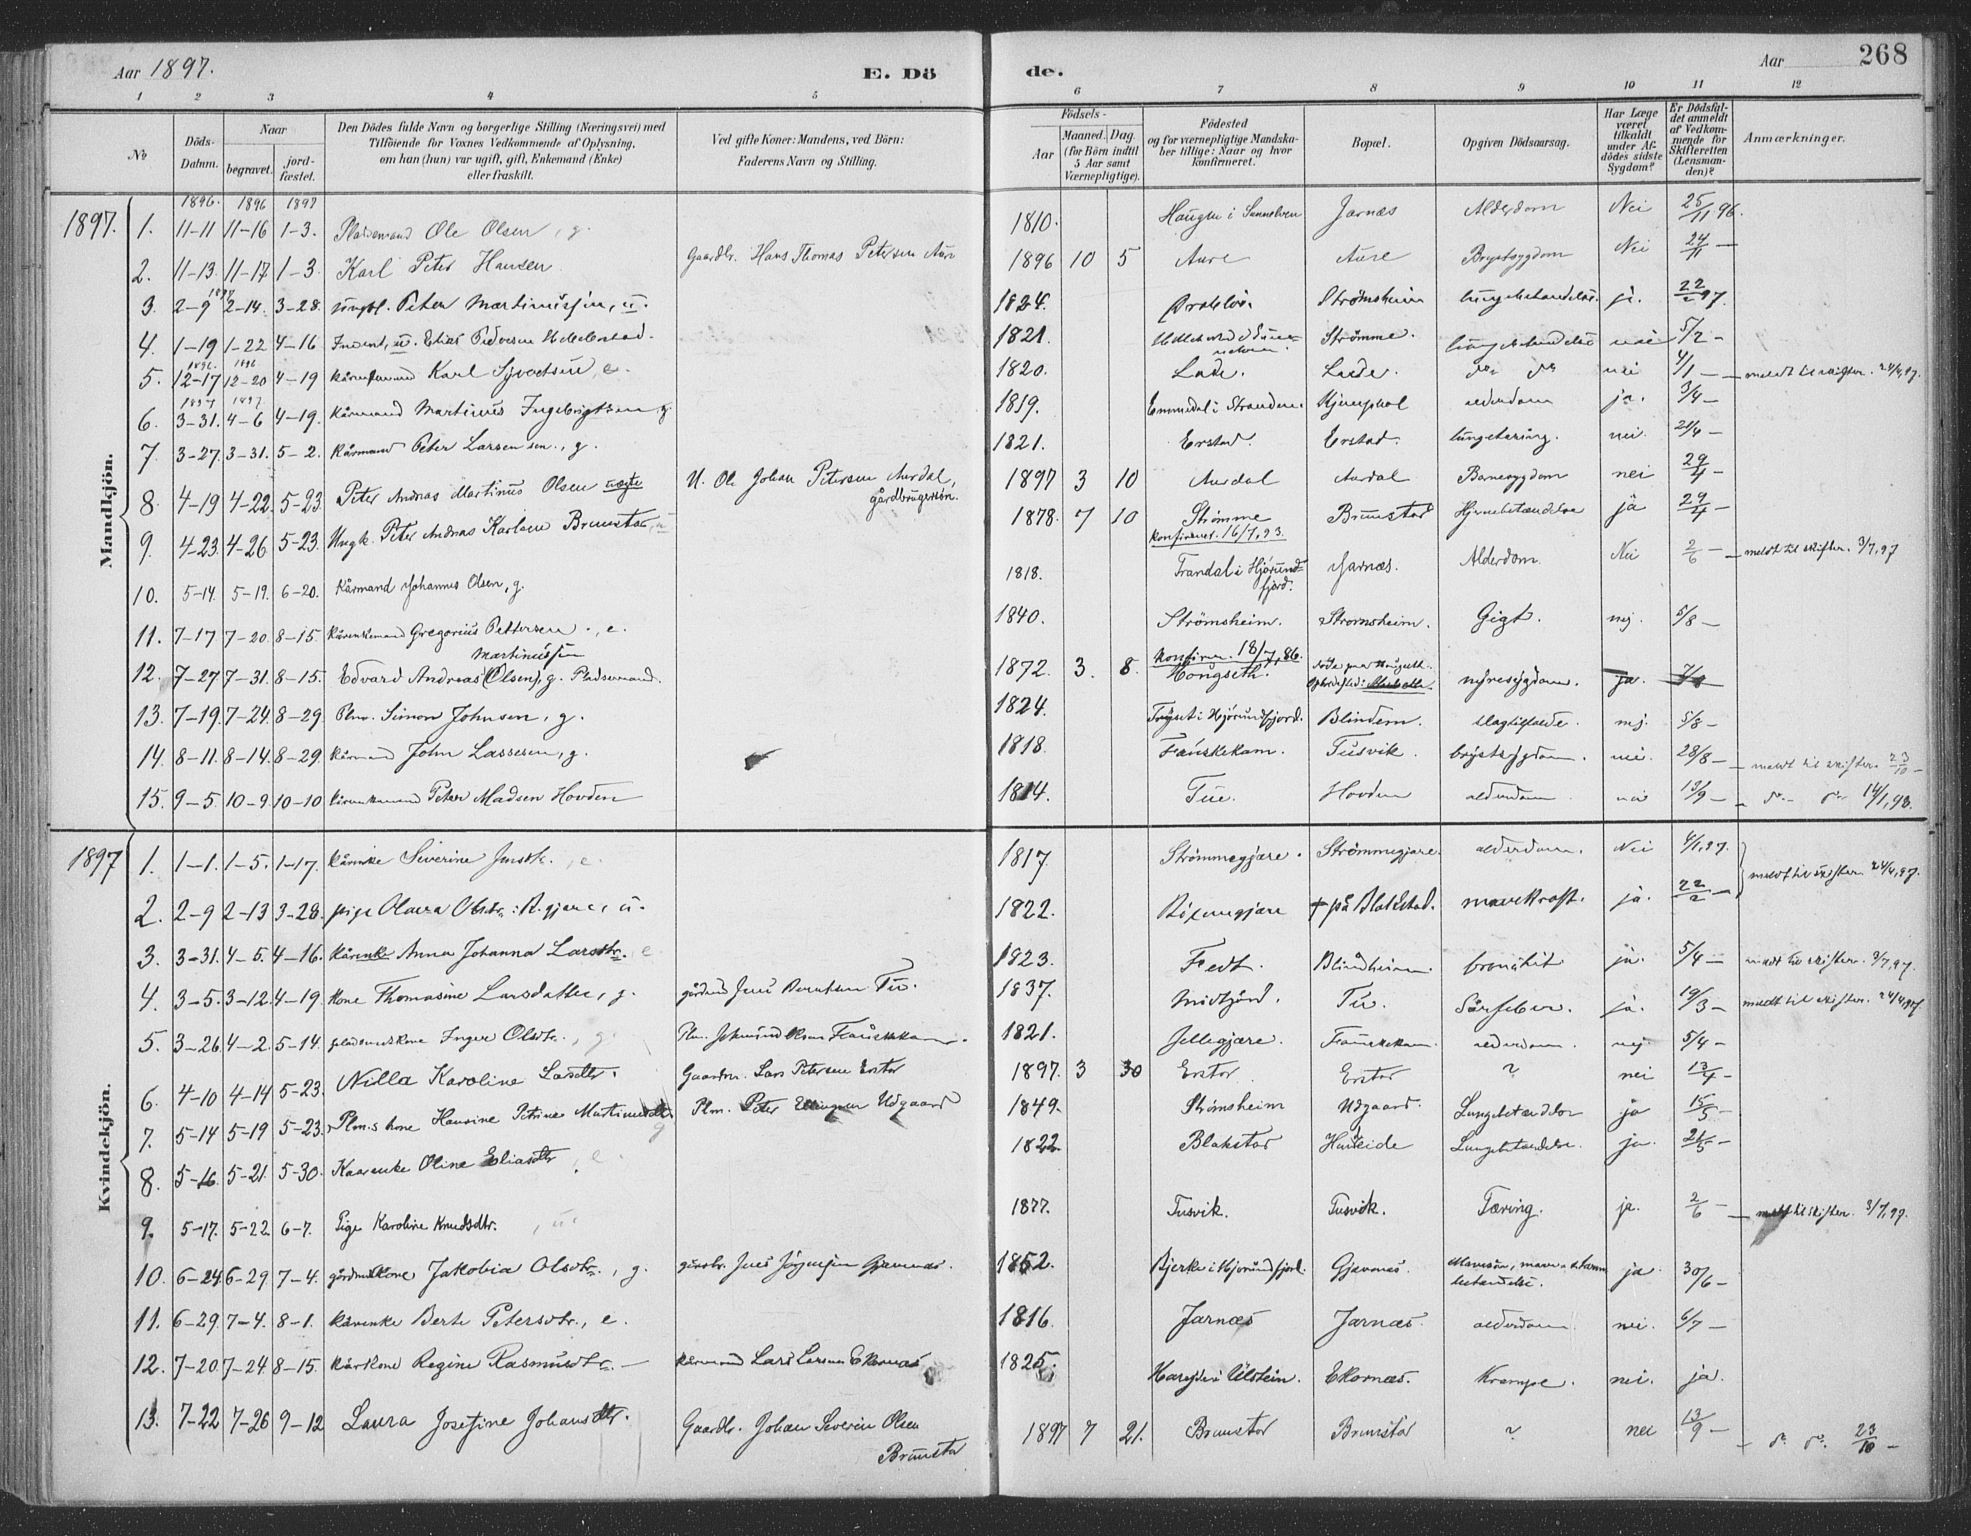 Aar 1897.
E. Dö
de.
Aar
268
1 2 3 4 5 6 7 8 9 10 11 12
No
Döds-
Datum.
Naar
begravet.
jord-
fæstet.
Den Dödes fulde Navn og borgerlige Stilling (Næringsvei) med
Tilföiende for Voxnes Vedkommende af Oplysning,
om han (hun) var ugift, gift, Enkemand (Enke)
eller fraskilt.
Ved gifte Koner: Mandens, ved Börn:
Faderens Navn og Stilling.
Födsels-
Aar
Maaned. Dag.
(for Börn indtil
5 Aar samt
Værnepligtige).
Födested
og for værnepligtige Mandska-
ber tillige: Naar og hvor
konfirmeret.
Bopæl.
Opgiven Dödsaarsag.
Har Læge
været
tilkaldt
under Af-
dödes sidste
Sygdom?
Er Dödsfal-
det anmeldt
af Vedkom-
mende for
Skifteretten
(Lensman-
den)?
Anmærkninger.
Mandkjön.
1896. 1896 1897
1897. 1. 11-11 11-16 1-3. Pladsmand Ole Olsen, g. 1810. Haugen i Sunnelven Jarnæs Alderdom Nei 25/11 96.
2. 11-13. 11-17 1-3. Karl Peter Hansen Gaardbr. Hans Thomas Petersen Aure 1896 10 5 Aure Aure Brystsygdom Nei 24/11 -
1897
3. 2-9 2-14. 3-28. Peter Martinussen, u. 1824. Strømsheim lungebetændelse. ja. 22/2 97.
4. 1-19 1-22 4-16 u. Elias Pedersen 1821. Strømme. lungebetændelse nei 5/2 -
1896. 1896
5. 12-17 12-20 4-19 kårenkemand Karl Sjvertsen, e. 1820. Lade. Lade. do do nei 4/1 - meldt til skifter. 24/4,97.
1897 1897
6. 3-31. 4-6 4-19. kårmand Martinus Ingebrigtsen g. 1819. Emmedal i Stranden. alderdom ja. 3/4 -
7. 3-27. 3-31. 5-2. kårmand Peter Larsen sen., g. 1821. Erstad. Erstad. lungetæring. nei. 21/4 -
8. 4-19 4-22. 5-23. Peter Andreas Martinus Olsen uægte U. Ole Johan Petersen Aurdal, gårdbrugersøn. 1897 3 10 Aurdal Aurdal Barnesygdom nei 29/4 -
9. 4-23. 4-26 5-23. Ungk. Peter Andreas Karlsen Brunstad, u 1878. 7 10 Strømme Brunstad Hjernebetændelse ja 29/4 -
konfirmeret. 16/7, 93.
10. 5-14. 5-19. 6-20. kårmand Johannes Olsen, g. 1818. Trandal i Hjørund-
fjord. Jarnæs. Alderdom. Nei 2/6 - meldt til skifter. 3/7,97
11. 7-17 7-20. 8-15. kårenkemand Gregorius Pettersen., e. 1840. Strömsheim. Stromsheim. Gigt. nej. 5/8 -
Martinussen konfirm. 18/7, 86.
12. 7-27 7-31. 8-15. Edvard Andreas (Olsen), g. Pladsemand. 1872. 3. 8. Hougseth. nyresygdom. ja.
13. 7-19. 7-24. 8-29 Plm. Simon Johnsen, g. 1824. i Hjörundfjord. Blindem. slagtilfælde. nej. 5/8 -
14. 8-11. 8-14. 8-29. kårmand John Lassesen, g. 1818. Fauskekam. Tusvik. brystsygdom. nei. 28/8 - meldt til skifter. 23/10 -
15. 9-5. 10-9. 10-10 kårenkemand Peter Madsen Hovden 1814. Tue. Hovden alderdom nei 13/9 - do do 14/1,98.
Kvindekjön.
1897 1. 1-1. 1-5. 1-17. kårenke Siverine Jensdtr., e. 1817. Strömmegjære. Strömmegjære. alderdom. Nei 4/1,97. meldt til skifter. 24/4,97.
2. 2-9 2-13 3-28. pige Olava Olsdtr., u. 1822. + på Blakstad. mavekræft. ja. 22/2 -
3. 3-31. 4-5. 4-16. kårenke Anna Johanna Larsdtr., e 1823. Fedt. Blindheim. bronchit. ja. 5/4 - meldt til skifter. 3/7,97.
4. 3-5. 3-12. 4-19. kone Thomasine Larsdatter, g. gårdmd Jens Berntsen Tu. 1837. Midtgård. Tu. Sårfeber. ja. 19/3 - meldt til skifter. 24/4,97.
5. 3-26. 4-2. 5-14. pladsmdskone Inger Olsdtr., g. Plm. Fauskekam. 1821. Jellegjære. Fauskekam. alderdom. nej. 5/4 -
6. 4-10 4-14 5-23. Nilla Karoline Larsdtr. Gaardm. Lars Petersen Erstad 1897. 3 30 Erstad Erstad ? nei 13/4 -
7. 5-14 5-19 5-23. Plm.s kone Hansine Petrine Martinusdtr g Plm. Peter Ellingsen Udgaard 1849. Strømsheim Udgaard. Lungebetændelse ja 15/5 -
8. 5-16. 5-21. 5-30. Kaarenke Oline Eliasdtr, e. 1822. Blakstad Lungebetændelse. ja. 21/5 -
9. 5-17. 5-22 6-7. Pige Karoline Knudsdtr., u. 1877. Tusvik. Tusvik. Tæring. ja. 2/6 - meldt til skifter. 3/7,97.
10. 6-24. 6-29 7-4. gårdmdskone Jakobia Olsdtr., g. gårdbr. Jens Jörgensen Gjævenæs. 1852. Bjerke i Hjörundfjord. Gjævenæs. ja 30/6 -
11. 6-29. 7-4. 8-1. kårenke Berte Petersdtr., e. 1816. Jarnæs Jarnæs. alderdom nei. 6/7 -
12. 7-20. 7-24 8-15. kårkone Regine Rasmusdtr. - kårmand Lars Larsen Ekornæs 1825. Hareide i Ulstein. Ekornæs. Krampe. nei. ja.
13. 7-22 7-26 9-12 Laura Josefine Johansdtr. Gaardbr. Johan Severin Olsen
Brunstad 1897 7 21. Brunstad Brunstad ? nei 13/9 - do do 23/10 -